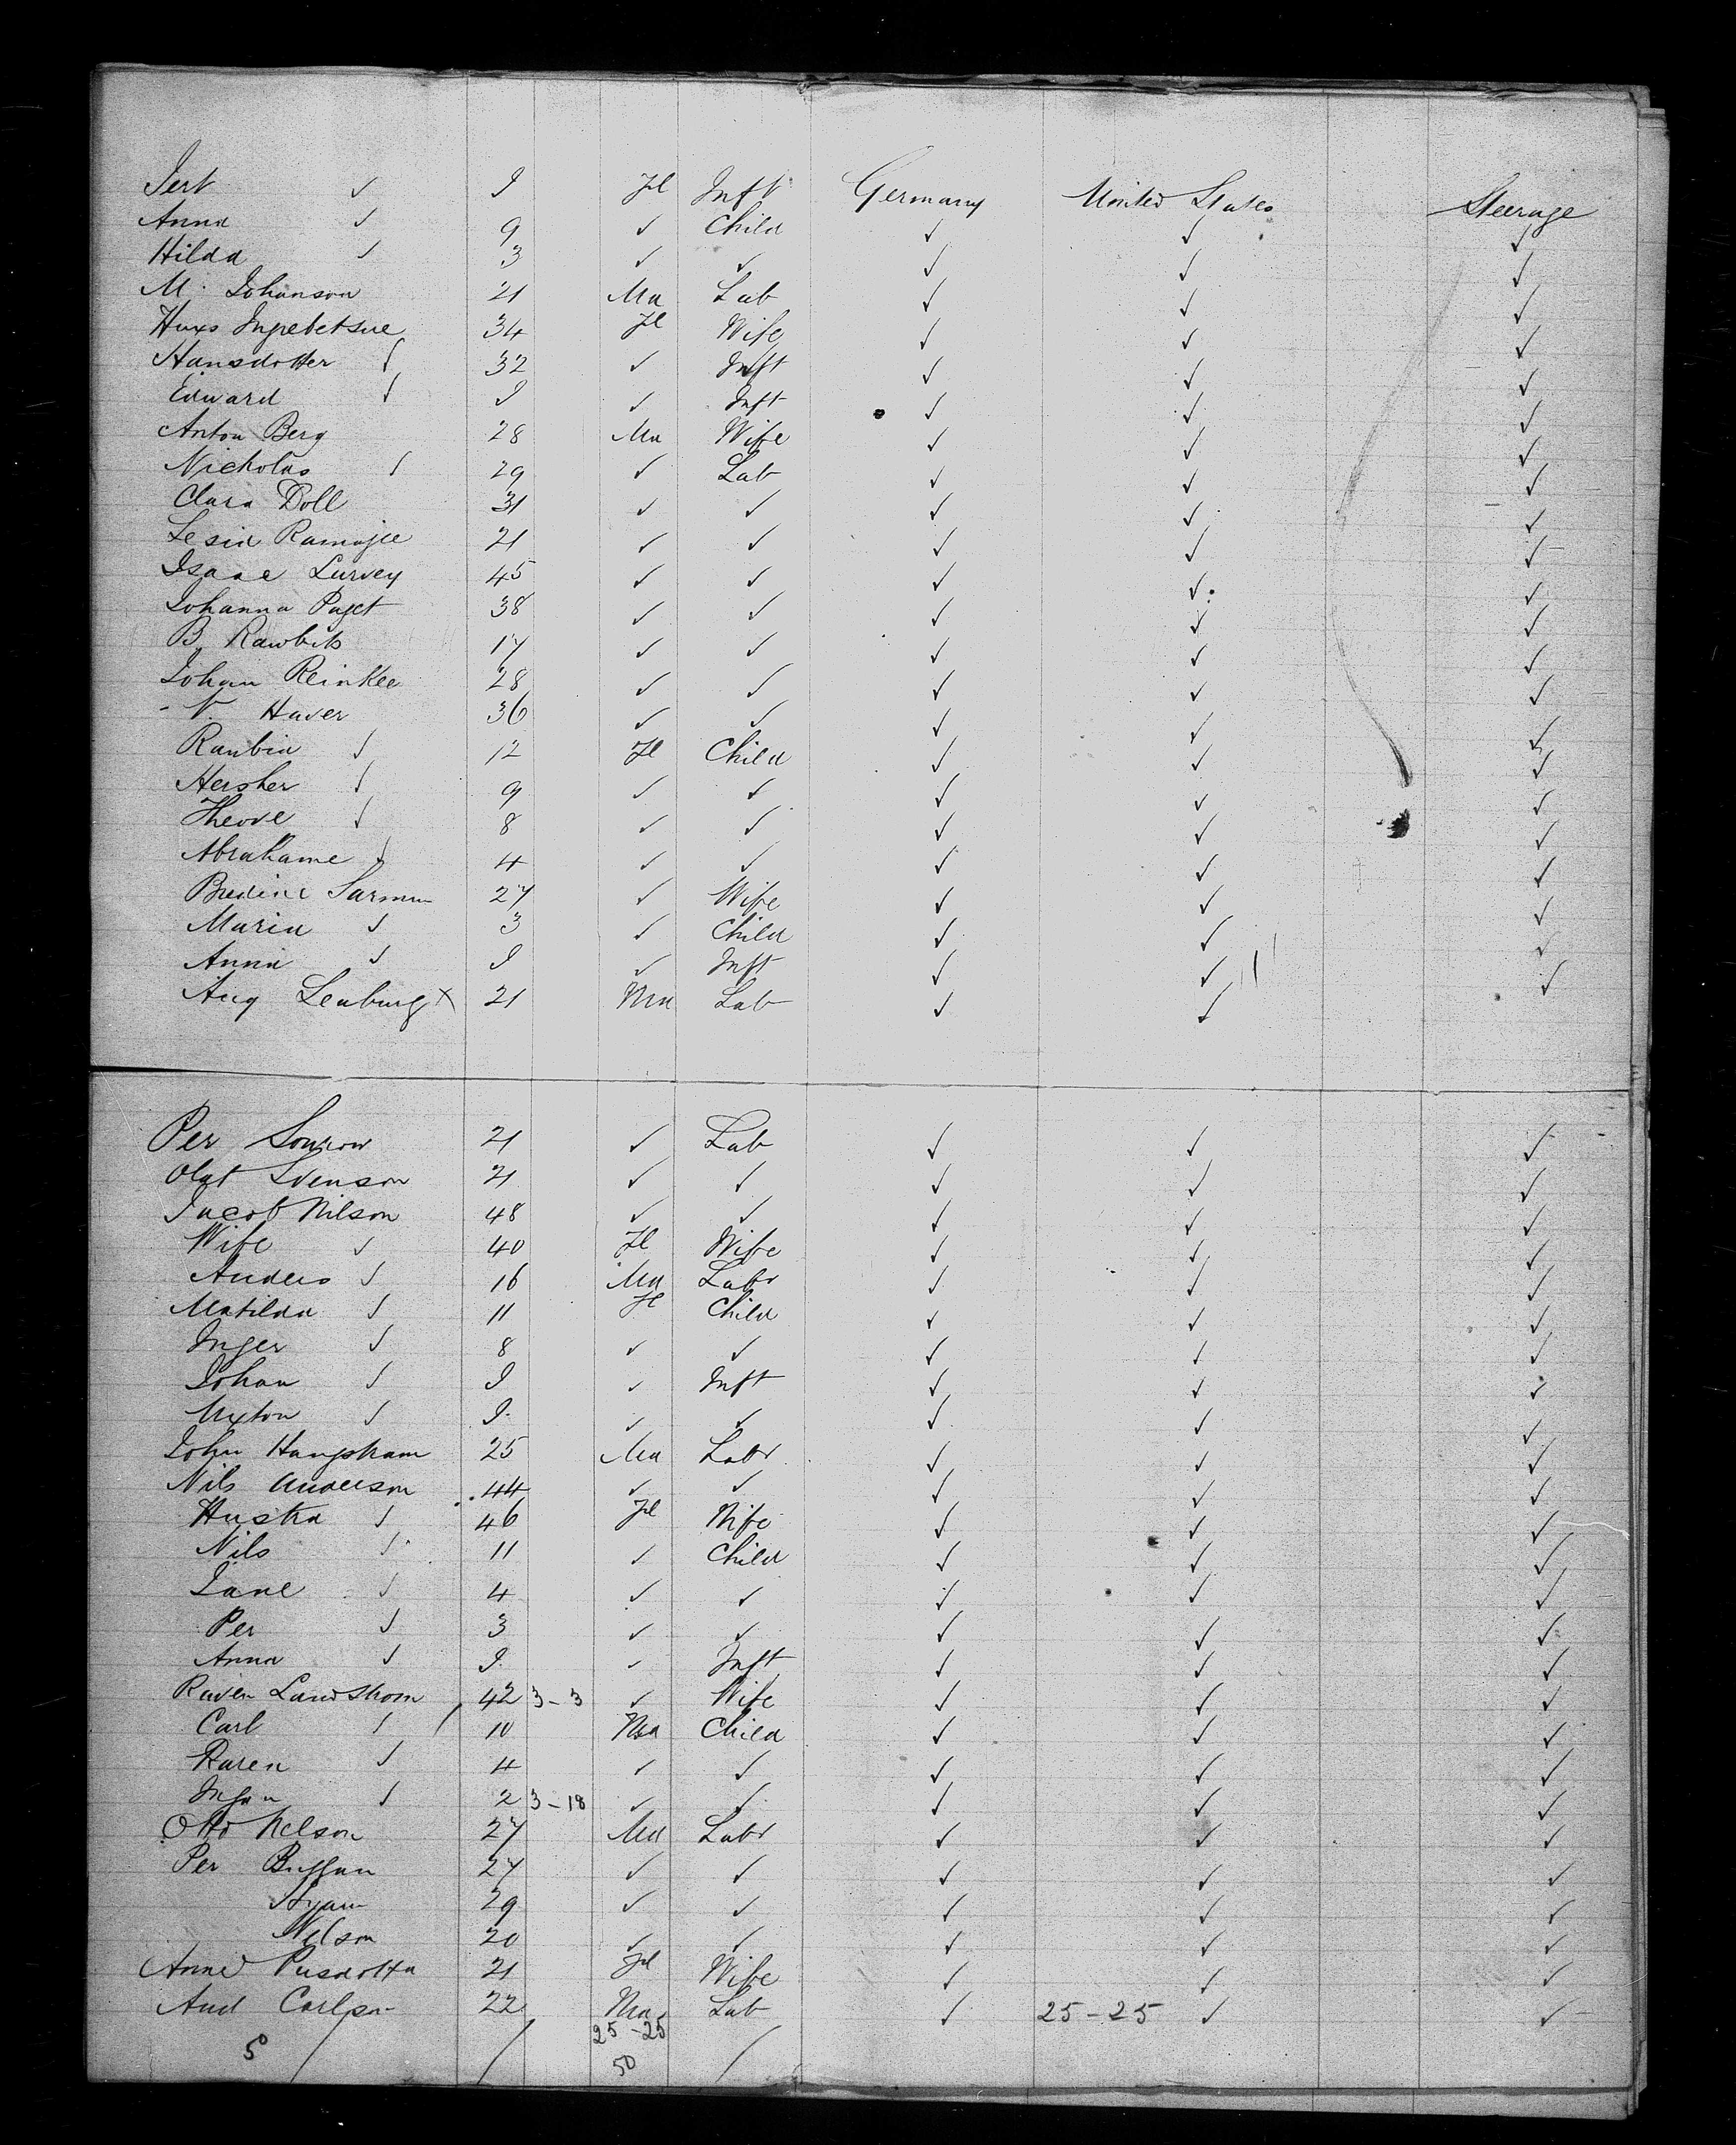 Jert ✓ I Fl Inft Germany United States Steerage
Anna ✓ 9 ✓ Child ✓ ✓ ✓
Hilda ✓ 3 ✓ ✓ ✓ ✓ ✓
M. Johanson 21 Ma Lab ✓ ✓ ✓
34 Fl Wife ✓ ✓ ✓
Hansdotter ✓ 32 ✓ Inft ✓ ✓ ✓
Edward ✓ I ✓ Inft ✓ ✓ ✓
Anton Berg 28 Ma Wife ✓ ✓ ✓
Nicholas ✓ 29 ✓ Lab ✓ ✓ ✓
Clara Doll 31 ✓ ✓ ✓ ✓ ✓
21 ✓ ✓ ✓ ✓ ✓
Isaae Lurvey 45 ✓ ✓ ✓ ✓ ✓
Johanna Paget 38 ✓ ✓ ✓ ✓ ✓
B. Rawbits 17 ✓ ✓ ✓ ✓ ✓
Johan Reinkee 28 ✓ ✓ ✓ ✓ ✓
Haver 36 ✓ ✓ ✓ ✓ ✓
Ranbia ✓ 12 Fl Child ✓ ✓ ✓
Hersher ✓ 9 ✓ ✓ ✓ ✓ ✓
Theove ✓ 8 ✓ ✓ ✓ ✓ ✓
Abrahame ✓ 4 ✓ ✓ ✓ ✓ ✓
27 ✓ Wife ✓ ✓ ✓
Maria ✓ 3 ✓ Child ✓ ✓ ✓
Anna ✓ I ✓ Inft ✓ ✓ ✓
Aug Lenburg x 21 Ma Lab ✓ ✓ ✓
Per 21 ✓ Lab ✓ ✓ ✓
Olat Svenson 21 ✓ ✓ ✓ ✓ ✓
Jacob Nilson 48 ✓ ✓ ✓ ✓ ✓
Wife ✓ 40 Fl Wife ✓ ✓ ✓
Anders ✓ 16 Ma Labr ✓ ✓ ✓
Matilda ✓ 11 Fl Child ✓ ✓ ✓
Inger ✓ 8 ✓ ✓ ✓ ✓ ✓
Johan ✓ I ✓ Inft ✓ ✓ ✓
✓ I ✓ ✓ ✓ ✓ ✓
John Hangsham 25 Ma Labr ✓ ✓ ✓
Nils Anderson 44 ✓ ✓ ✓ ✓ ✓
Hustra ✓ 46 Fl Wife ✓ ✓ ✓
Nils ✓ 11 ✓ Child ✓ ✓ ✓
Jane ✓ 4 ✓ ✓ ✓ ✓ ✓
Per ✓ 3 ✓ ✓ ✓ ✓ ✓
Anna ✓ I ✓ Inft ✓ ✓ ✓
Landstrom 42 3-3 ✓ Wife ✓ ✓ ✓
Carl ✓ 10 Ma Child ✓ ✓ ✓
Karen ✓ 4 ✓ ✓ ✓ ✓ ✓
✓ 2 3-18 ✓ ✓ ✓ ✓ ✓
Otto Nelson 27 Ma Labr ✓ ✓ ✓
Per 27 ✓ ✓ ✓ ✓ ✓
29 ✓ ✓ ✓ ✓ ✓
Nelson 20 ✓ ✓ ✓ ✓ ✓
21 Fl Wife ✓ ✓ ✓
Aud Carlson 22 Ma Lab ✓ 25-25 ✓ ✓
25-25
5 50